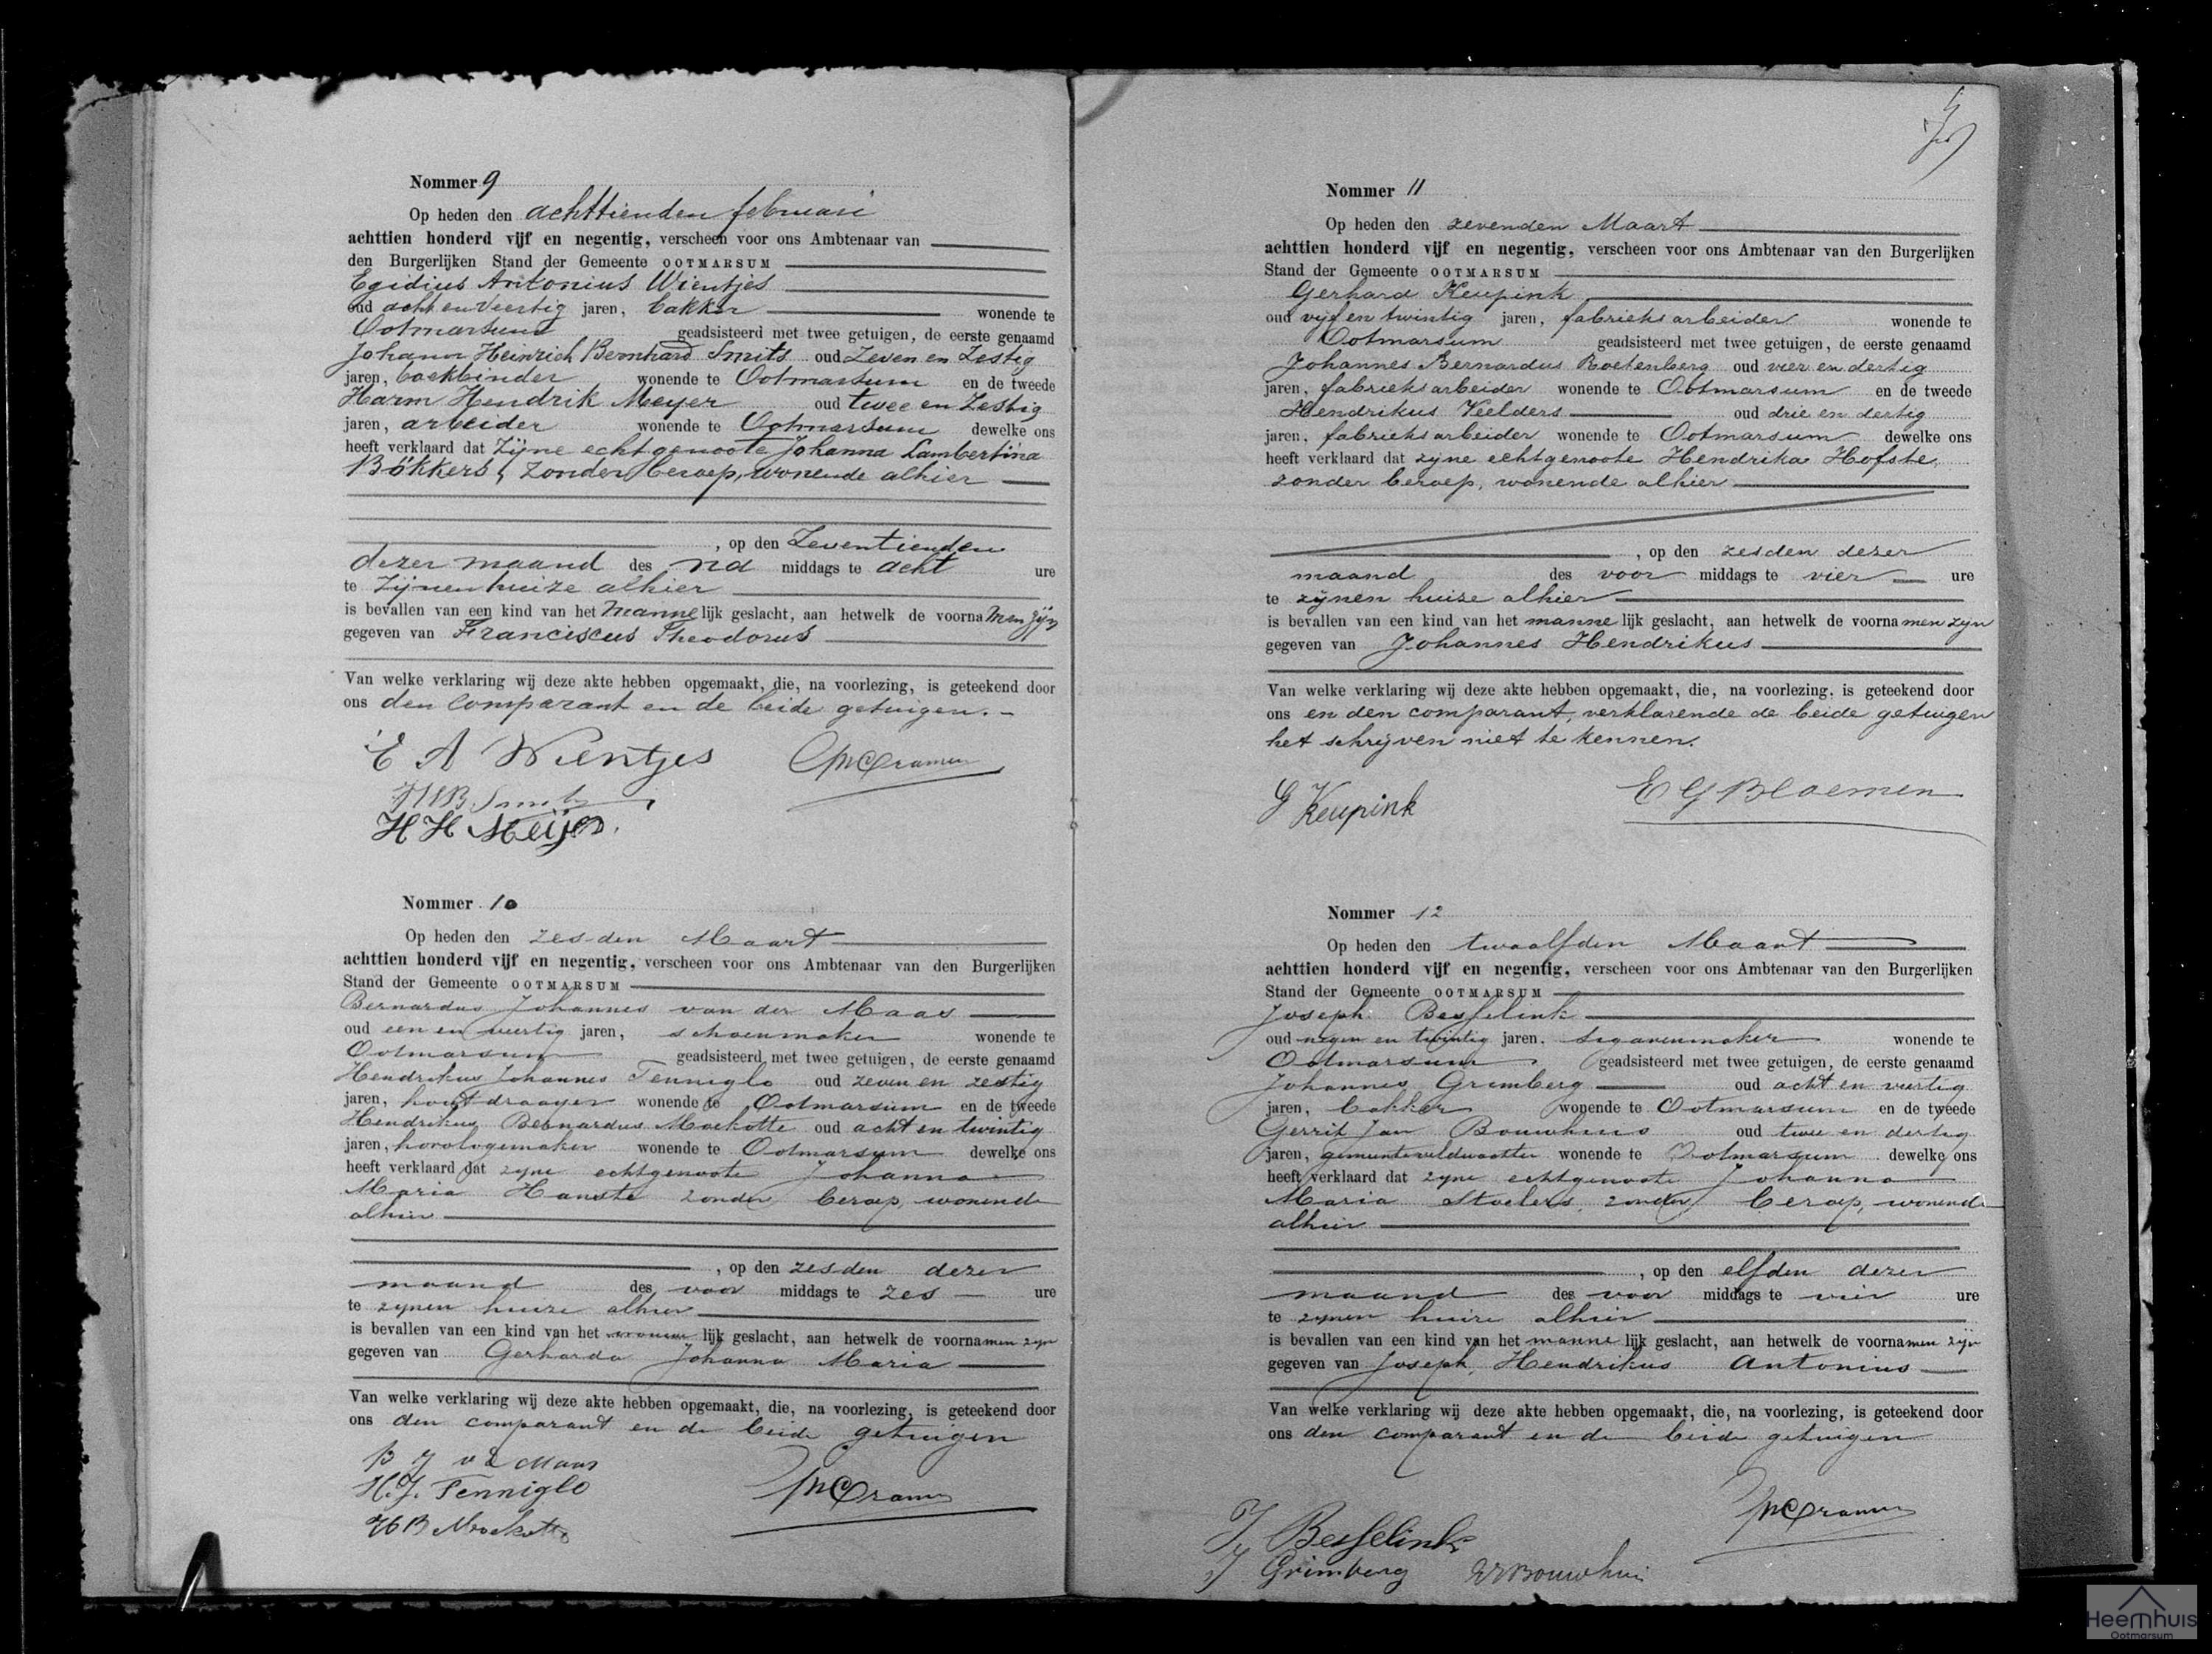 Nommer 9
Op heden den achttienden februari
achttien honderd vijf en negentig, verscheen voor ons Ambtenaar van
den Burgerlijken Stand der Gemeente OOTMARSUM
Egidius Antonius Wientjes
oud acht en Veertig jaren, bakker wonende te
Ootmarsum geadsisteerd met twee getuigen, de eerste genaamd
Johann Heinrich Bernhard Smits oud Zeven en Zestig
jaren, boekbinder wonende te Ootmarsum en de tweede
Harm Hendrik Meyer oud twee en Zestig
jaren, arbeider wonende te Ootmarsum dewelke ons
heeft verklaard dat Zijne echtgenoote Johanna Lambertina
Bökkers, zonder beroep, wonende alhier
, op den Zeventienden
dezer maand des na middags te acht ure
te Zijnen huize alhier
is bevallen van een kind van het mannelijk geslacht, aan hetwelk de voornamen zijn
gegeven van Franciscus Theodorus
Van welke verklaring wij deze akte hebben opgemaakt, die, na voorlezing, is geteekend door
ons den Comparant en de beide getuigen.
E A Wientjes
JHB Smits
H H Meijer
Nommer 10
Op heden den zesden Maart
achttien honderd vijf en negentig, verscheen voor ons Ambtenaar van den Burgerlijken
Stand der Gemeente OOTMARSUM
Bernardus Johannes van der Maas
oud een en veertig jaren, schoenmaker wonende te
Ootmarsum geadsisteerd met twee getuigen, de eerste genaamd
Hendrikus Johannes Fenniglo oud zeven en zestig
jaren, wonende te Ootmarsum en de tweede
Hendrikus Bernardus Mockotte oud acht en twintig
jaren, horologemaker wonende te Ootmarsum dewelke ons
heeft verklaard dat zyne echtgenoote Johanna
Maria zonder beroep, wonende
alhier
, op den zesden dezer
maand des voor middags te zes ure
te zynen huize alhier
is bevallen van een kind van het vrouwelijk geslacht, aan hetwelk de voornamen zyn
gegeven van Gerharda Johanna Maria
Van welke verklaring wij deze akte hebben opgemaakt, die, na voorlezing, is geteekend door
ons den comparant en de beide getuigen
B J v d Maas
H.J. Fenniglo
HB Mockotte
Nommer 11
Op heden den zevenden Maart
achttien honderd vijf en negentig, verscheen voor ons Ambtenaar van den Burgerlijken
Stand der Gemeente OOTMARSUM
Gerhard Keupink
oud vyf en twintig jaren, fabrieksarbeider wonende te
Ootmarsum geadsisteerd met twee getuigen, de eerste genaamd
Johannes Bernardus Roetenberg oud vier en dertig
jaren, fabrieksarbeider wonende te Ootmarsum en de tweede
Hendrikus Veelders oud drie en dertig
jaren, fabrieksarbeider wonende te Ootmarsum dewelke ons
heeft verklaard dat zyne echtgenoote Hendrika Hofste,
zonder beroep, wonende alhier
, op den zesden dezer
maand des voor middags te vier ure
te zynen huize alhier
is bevallen van een kind van het mannelijk geslacht, aan hetwelk de voornamen zyn
gegeven van Johannes Hendrikus
Van welke verklaring wij deze akte hebben opgemaakt, die, na voorlezing, is geteekend door
ons en den comparant, verklarende de beide getuigen
het schryven niet te kennen.
G Keupink E G Bloemen
Nommer 12
Op heden den twaalfden Maart
achttien honderd vijf en negentig, verscheen voor ons Ambtenaar van den Burgerlijken
Stand der Gemeente OOTMARSUM
Joseph Besselink
oud negen en twintig jaren, sigarenmaker wonende te
Ootmarsum geadsisteerd met twee getuigen, de eerste genaamd
Johannes Grimberg oud acht en veertig
jaren, bakker wonende te Ootmarsum en de tweede
Gerrit Jan Bouwhuis oud twee en dertig
jaren, gemeenteveldwachter wonende te Ootmarsum dewelke ons
heeft verklaard dat zyne echtgenoote Johanna
Maria zonder beroep, wonende
alhier
, op den elfden dezer
maand des voor middags te vier ure
te zynen huize alhier
is bevallen van een kind van het mannelijk geslacht, aan hetwelk de voornamen zijn
gegeven van Joseph Hendrikus Antonius
Van welke verklaring wij deze akte hebben opgemaakt, die, na voorlezing, is geteekend door
ons den comparant en de beide getuigen
J Besselink
J Grimberg Bouwhuis
Heemhuis
Ootmarsum